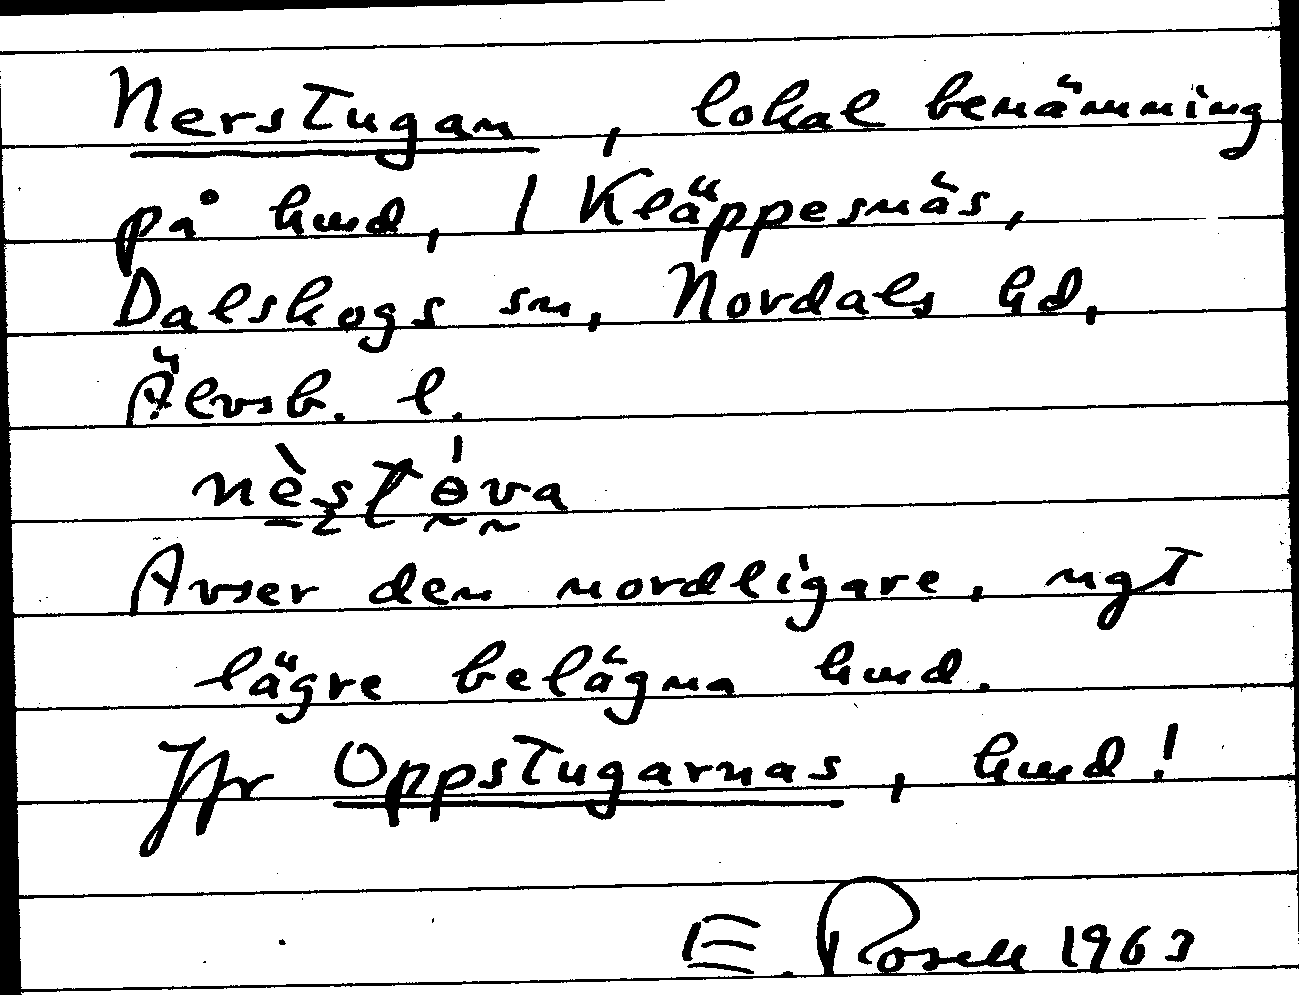 Nerstugan, lokal benämning
på hmd, 1 Kläppesnäs,
Dalskogs sn, Nordals hd,
Älvsb. l.
nèstɵ́va
Avser den nordligare, ngt
lägre belägna hmd.
Jfr Oppstugarnas, hmd!
E. Rosell 1963